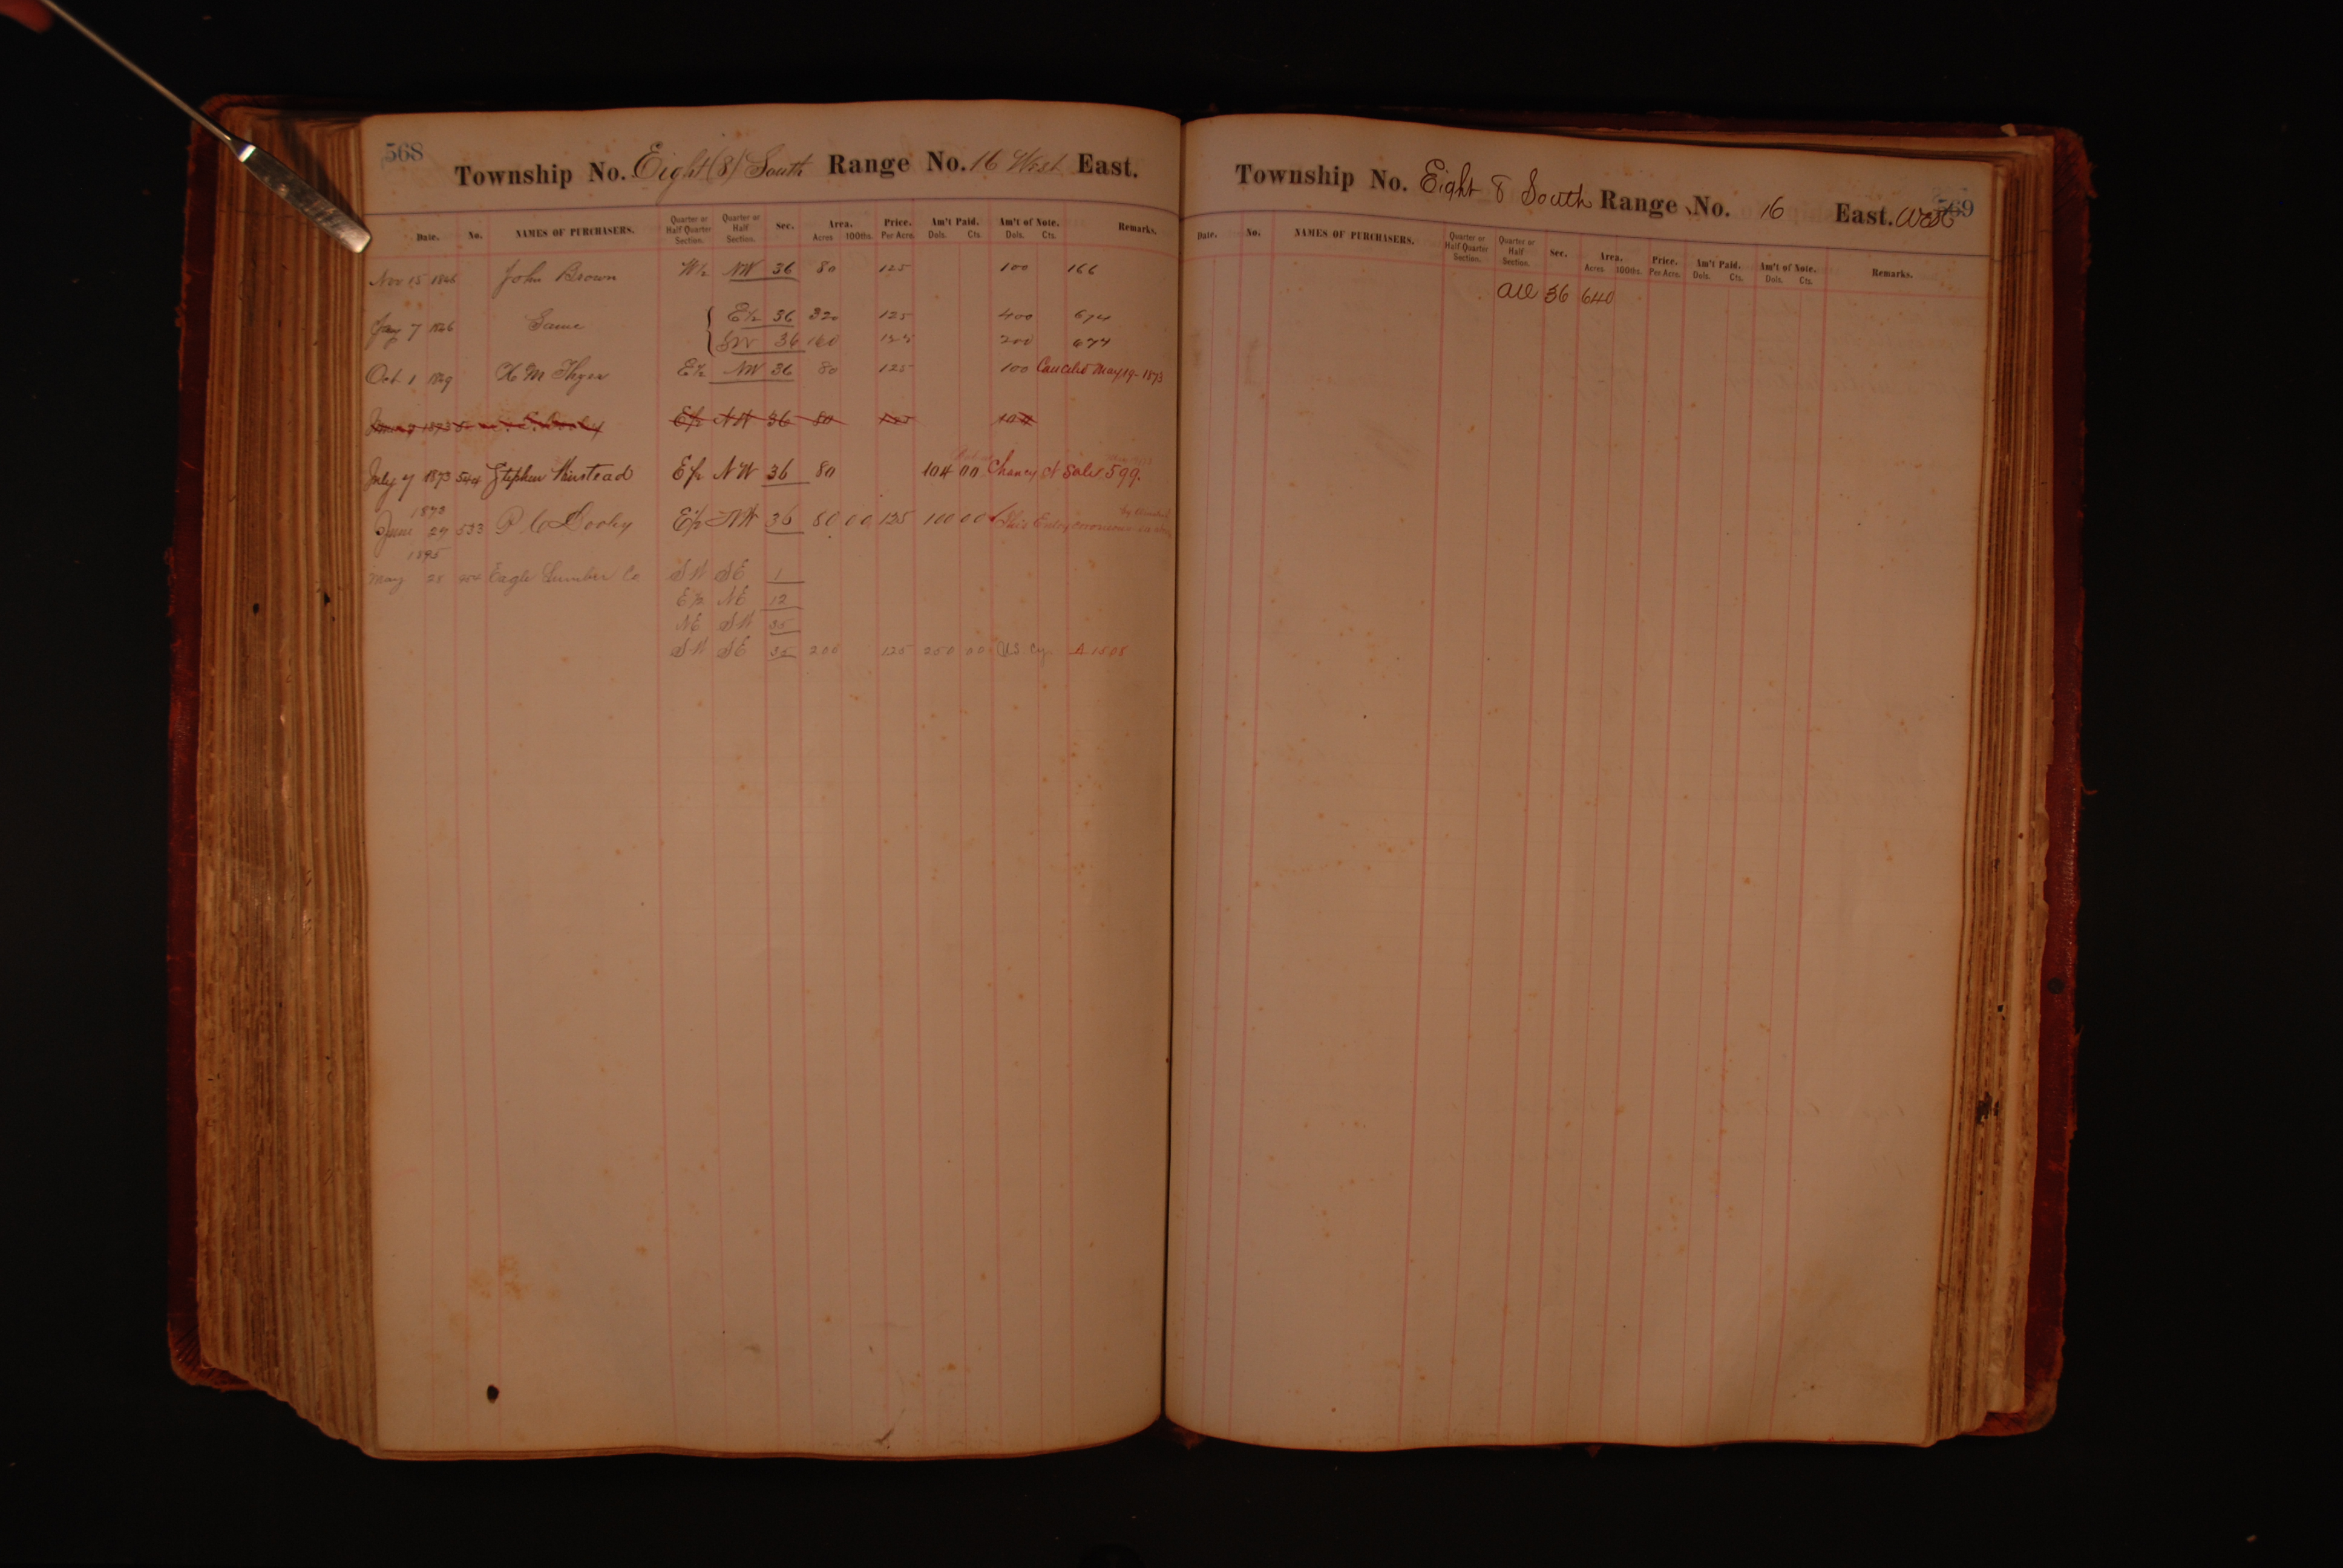 568
Township No. Eight (8) South Range No. 16 West East.
Date. No. NAMES OF PURCHASERS. Quarter or Half Quarter Section. Quarter or Half Section. Sec. Area. Acres 100ths. Price. Per Acre. Am't Paid. Dols. Cts. Am't of Note. Dols. Cts. Remarks.
Nov 15 1846 John Brown W½ NW 36 80 125 100 166
Jany 7 1846 Same E½ 36 320 125 400 674
SW 36 160 125 200 674
Oct 1 1849 E½ NW 36 80 125 100 Canceled May 19 - 1873
E½ NW 36 80 125 100
July 7 1873 544 Stephen Winstead E½ NW 36 80 104 00 Chancy Ct Sales 599.
1873
June 27 533 P C Dooly E½ NW 36 80 00 125 100 00 This Entry erroneous
1895
May 28 Eagle Lumber Co SW SE 1
E½ NE 12
NE SW 35
SW SE 35 200 125 250 00 US Cy A 1505
Township No. Eight 8 South Range No. 16 East. West
569
Date. No. NAMES OF PURCHASERS. Quarter or Half Quarter Section. Quarter or Half Section. Sec. Area. Acres 100ths. Price. Per Acre. Am't Paid. Dols. Cts. Am't of Note. Dols. Cts. Remarks.
All 36 640